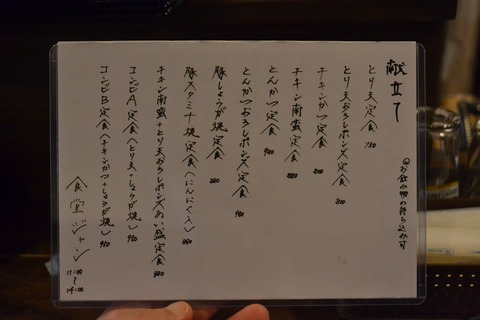 献立て
◎お飲み物の持ち込み可
とり天定食 750
とり天おろしポンズ定食 800
チキンかつ定食
チキン南蛮定食 880
とんかつ定食 900
とんかつおろしポンズ定食 950
豚しょうが焼定食 880
豚スタミナ焼定食(にんにく入) 880
チキン南蛮+とり天おろしポンズあい盛定食 980
コンビA定食(とり天+しょうが焼) 950
コンビB定食(チキンかつ+しょうが焼) 950
食堂ジャン
11:00
~
14:00